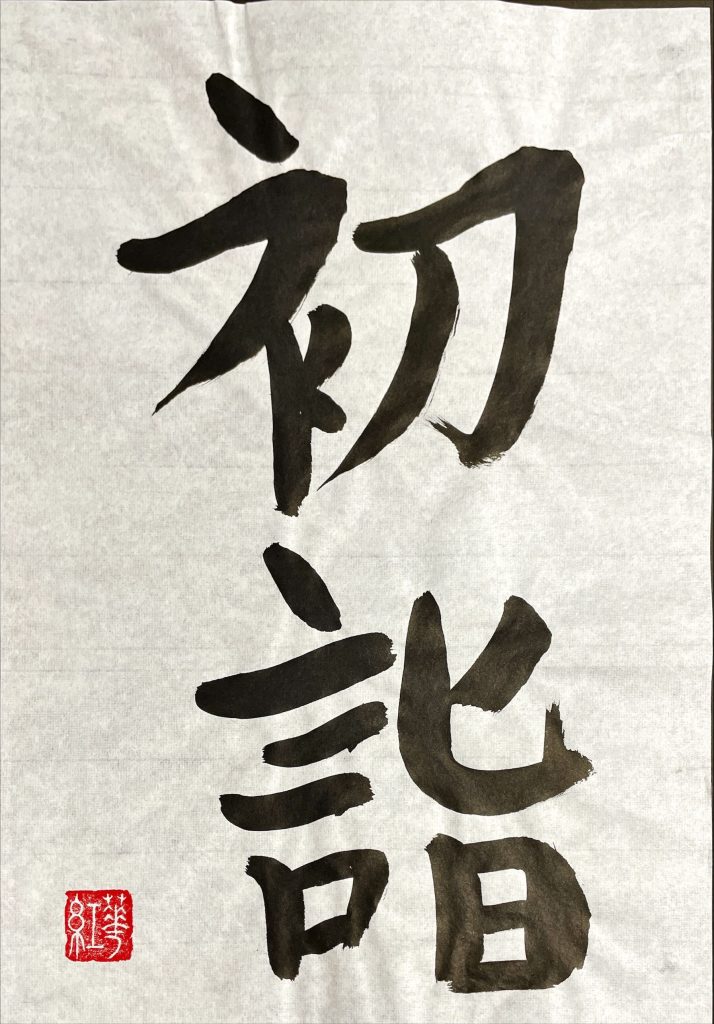 初詣
華紅